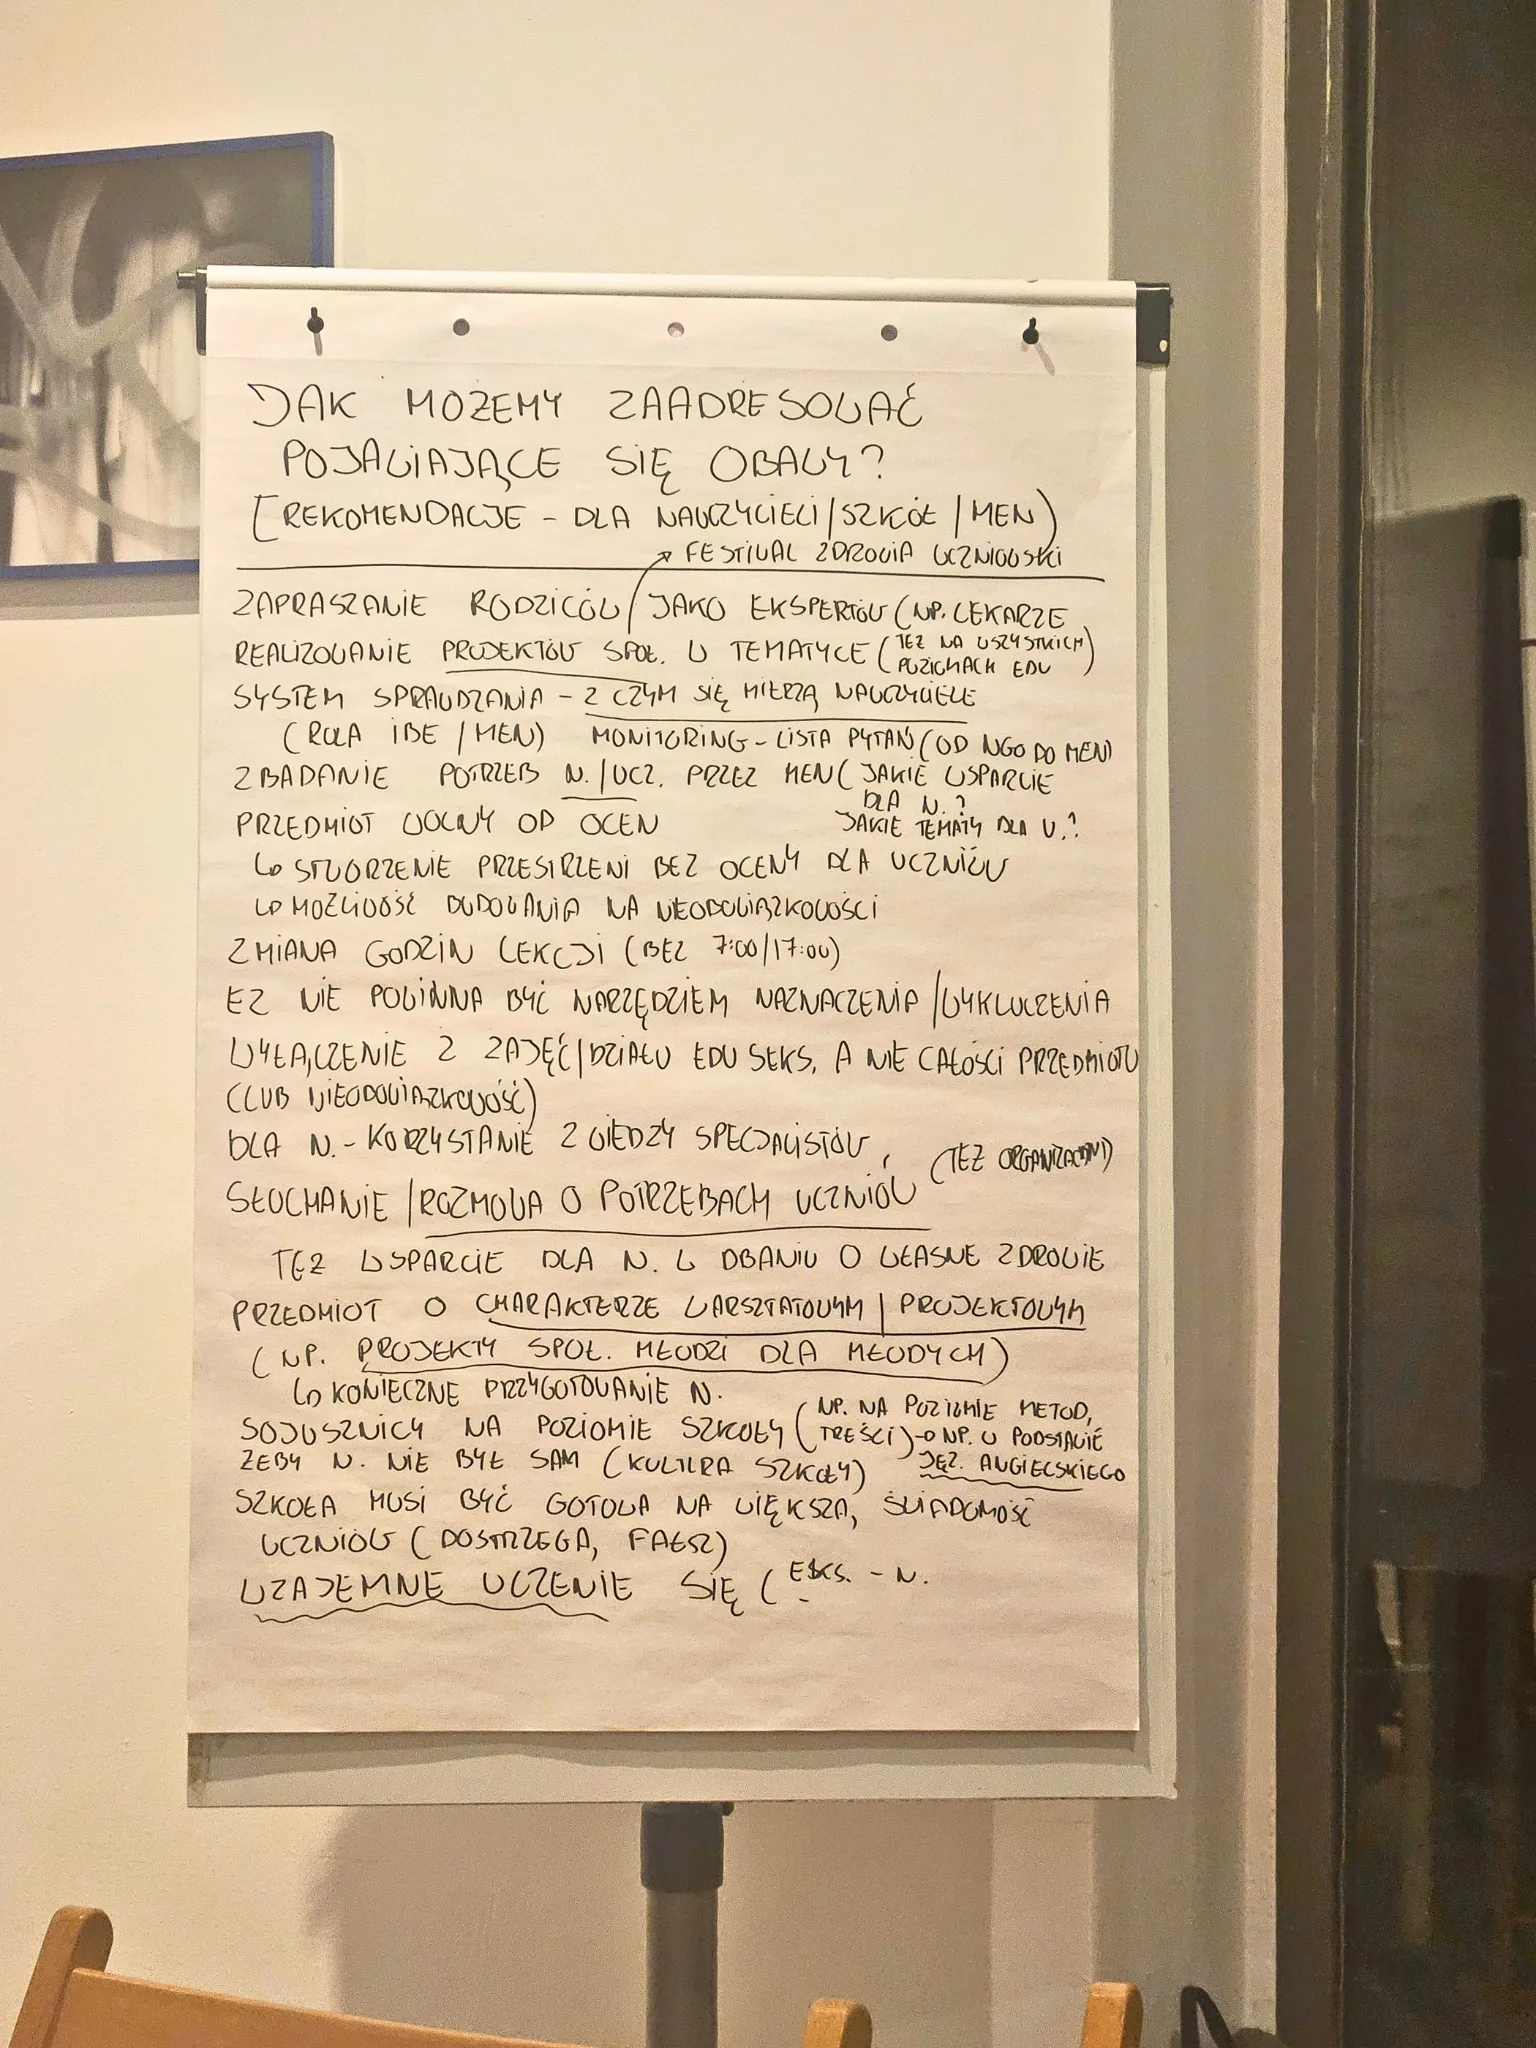 JAK MOŻEMY ZAADRESOWAĆ
POJAWIAJĄCE SIĘ OBAWY?
[REKOMENDACJE - DLA NAUCZYCIELI/SZKÓŁ/MEN)
FESTIWAL ZDROWIA UCZNIOWSKI
ZAPRASZANIE RODZICÓW JAKO EKSPERTÓW (NP. LEKARZE
REALIZOWANIE PROJEKTÓW SPOŁ. W TEMATYCE (TEŻ NA WSZYSTKICH
POZIOMACH EDU)
SYSTEM SPRAWDZANIA - Z CZYM SIĘ MIERZĄ NAUCZYCIELE
(ROLA IBE / MEN) MONITORING - LISTA PYTAŃ (OD NGO DO MEN)
ZBADANIE POTRZEB N./UCZ. PRZEZ MEN (JAKIE WSPARCIE
DLA N.?
JAKIE TEMATY DLA U.?
PRZEDMIOT WOLNY OD OCEN
↳ STWORZENIE PRZESTRZENI BEZ OCENY DLA UCZNIÓW
↳ MOŻLIWOŚĆ NA NIEOBOWIĄZKOWOŚCI
ZMIANA GODZIN LEKCJI (BEZ 7:00/17:00)
EZ NIE POWINNA BYĆ NARZĘDZIEM NAZNACZENIA/WYKLUCZENIA
WYŁĄCZENIE Z ZAJĘĆ/DZIAŁU EDU SEKS, A NIE CAŁOŚCI PRZEDMIOTU
(LUB NIEOBOWIĄZKOWOŚĆ)
DLA N. - KORZYSTANIE Z WIEDZY SPECJALISTÓW, (TEŻ ORGANIZACJAMI)
SŁUCHANIE / ROZMOWA O POTRZEBACH UCZNIÓW
TEŻ WSPARCIE DLA N. W DBANIU O WŁASNE ZDROWIE
PRZEDMIOT O CHARAKTERZE WARSZTATOWYM / PROJEKTOWYM
(NP. PROJEKTY SPOŁ. MŁODZI DLA MŁODYCH)
↳ KONIECZNE PRZYGOTOWANIE N.
SOJUSZNICY NA POZIOMIE SZKOŁY (NP. NA POZIOMIE METOD,
TREŚCI) → NP. W PODSTAWIE
JĘZ. ANGIELSKIEGO
ŻEBY N. NIE BYŁ SAM (KULTURA SZKOŁY)
SZKOŁA MUSI BYĆ GOTOWA NA WIĘKSZĄ ŚWIADOMOŚĆ
UCZNIÓW (DOSTRZEGĄ FAŁSZ)
WZAJEMNE UCZENIE SIĘ ( - N.